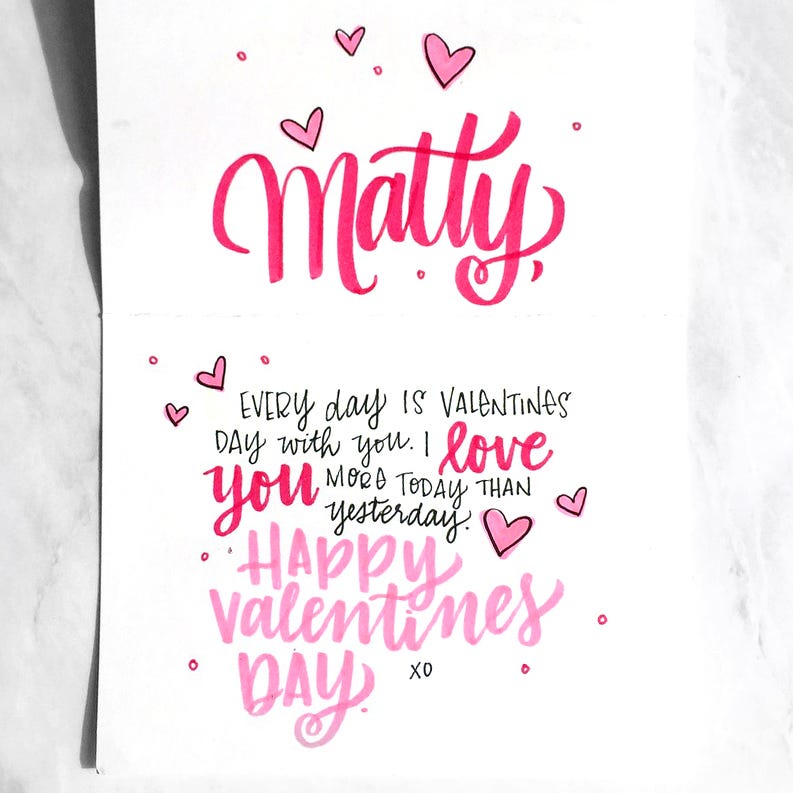 Matty,
EVERY day IS VALENTINES
DAY with you. I love
you MORE TODAY THAN
yesterday.
HAPPY
valentines
DAY.
XO